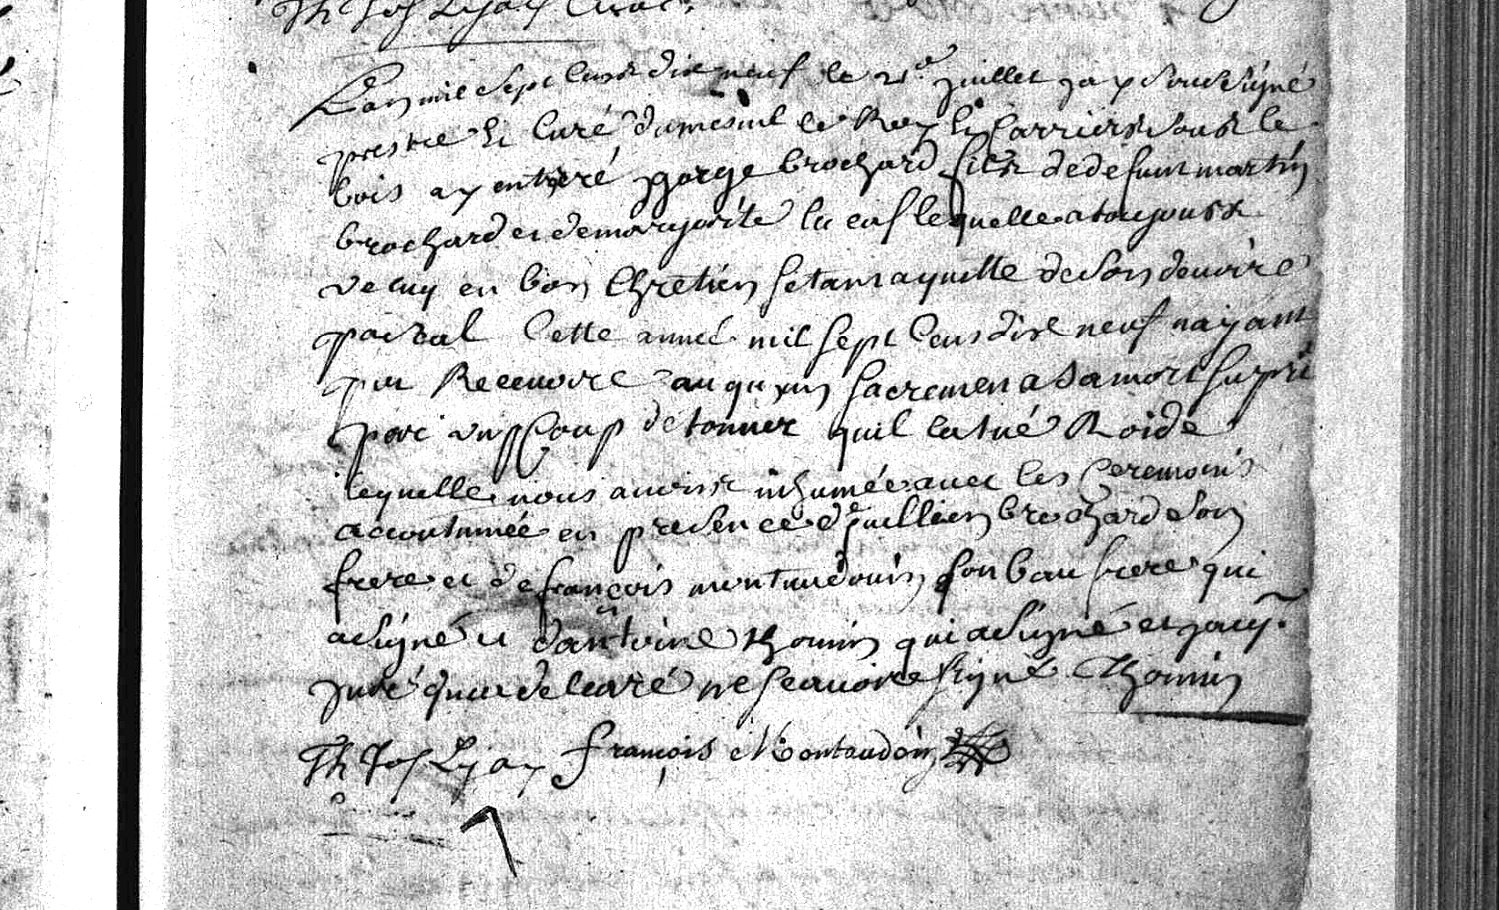 Th Jos Lyay Curé
Lan mil sept Cens dix neuf le 21e juillet jay soussigné
prestre et Curé du mesnil le Roy et Carrierre sous le
bois ay enteré gorge brochard fils de defunt martin
brochard et de margorite lequelle a toujours
vecuy en bon Chretien setant aquitte de son devoire
pascal Cette année mil sept Cens dix neuf nayant
pu Recevoire auqun sacremen a sa mort surpri
par un Coup de tonner quil la tué Roide
lequelle nous avons inhumée avec les Ceremonis
accoutumée en presence de jullien brochard son
frere et de françois montaudouin son bau frere qui
a signé et dantoine thomin qui a signé et
ne scavoire signé Thomin
Th Jos Lyay françois Montaudoin